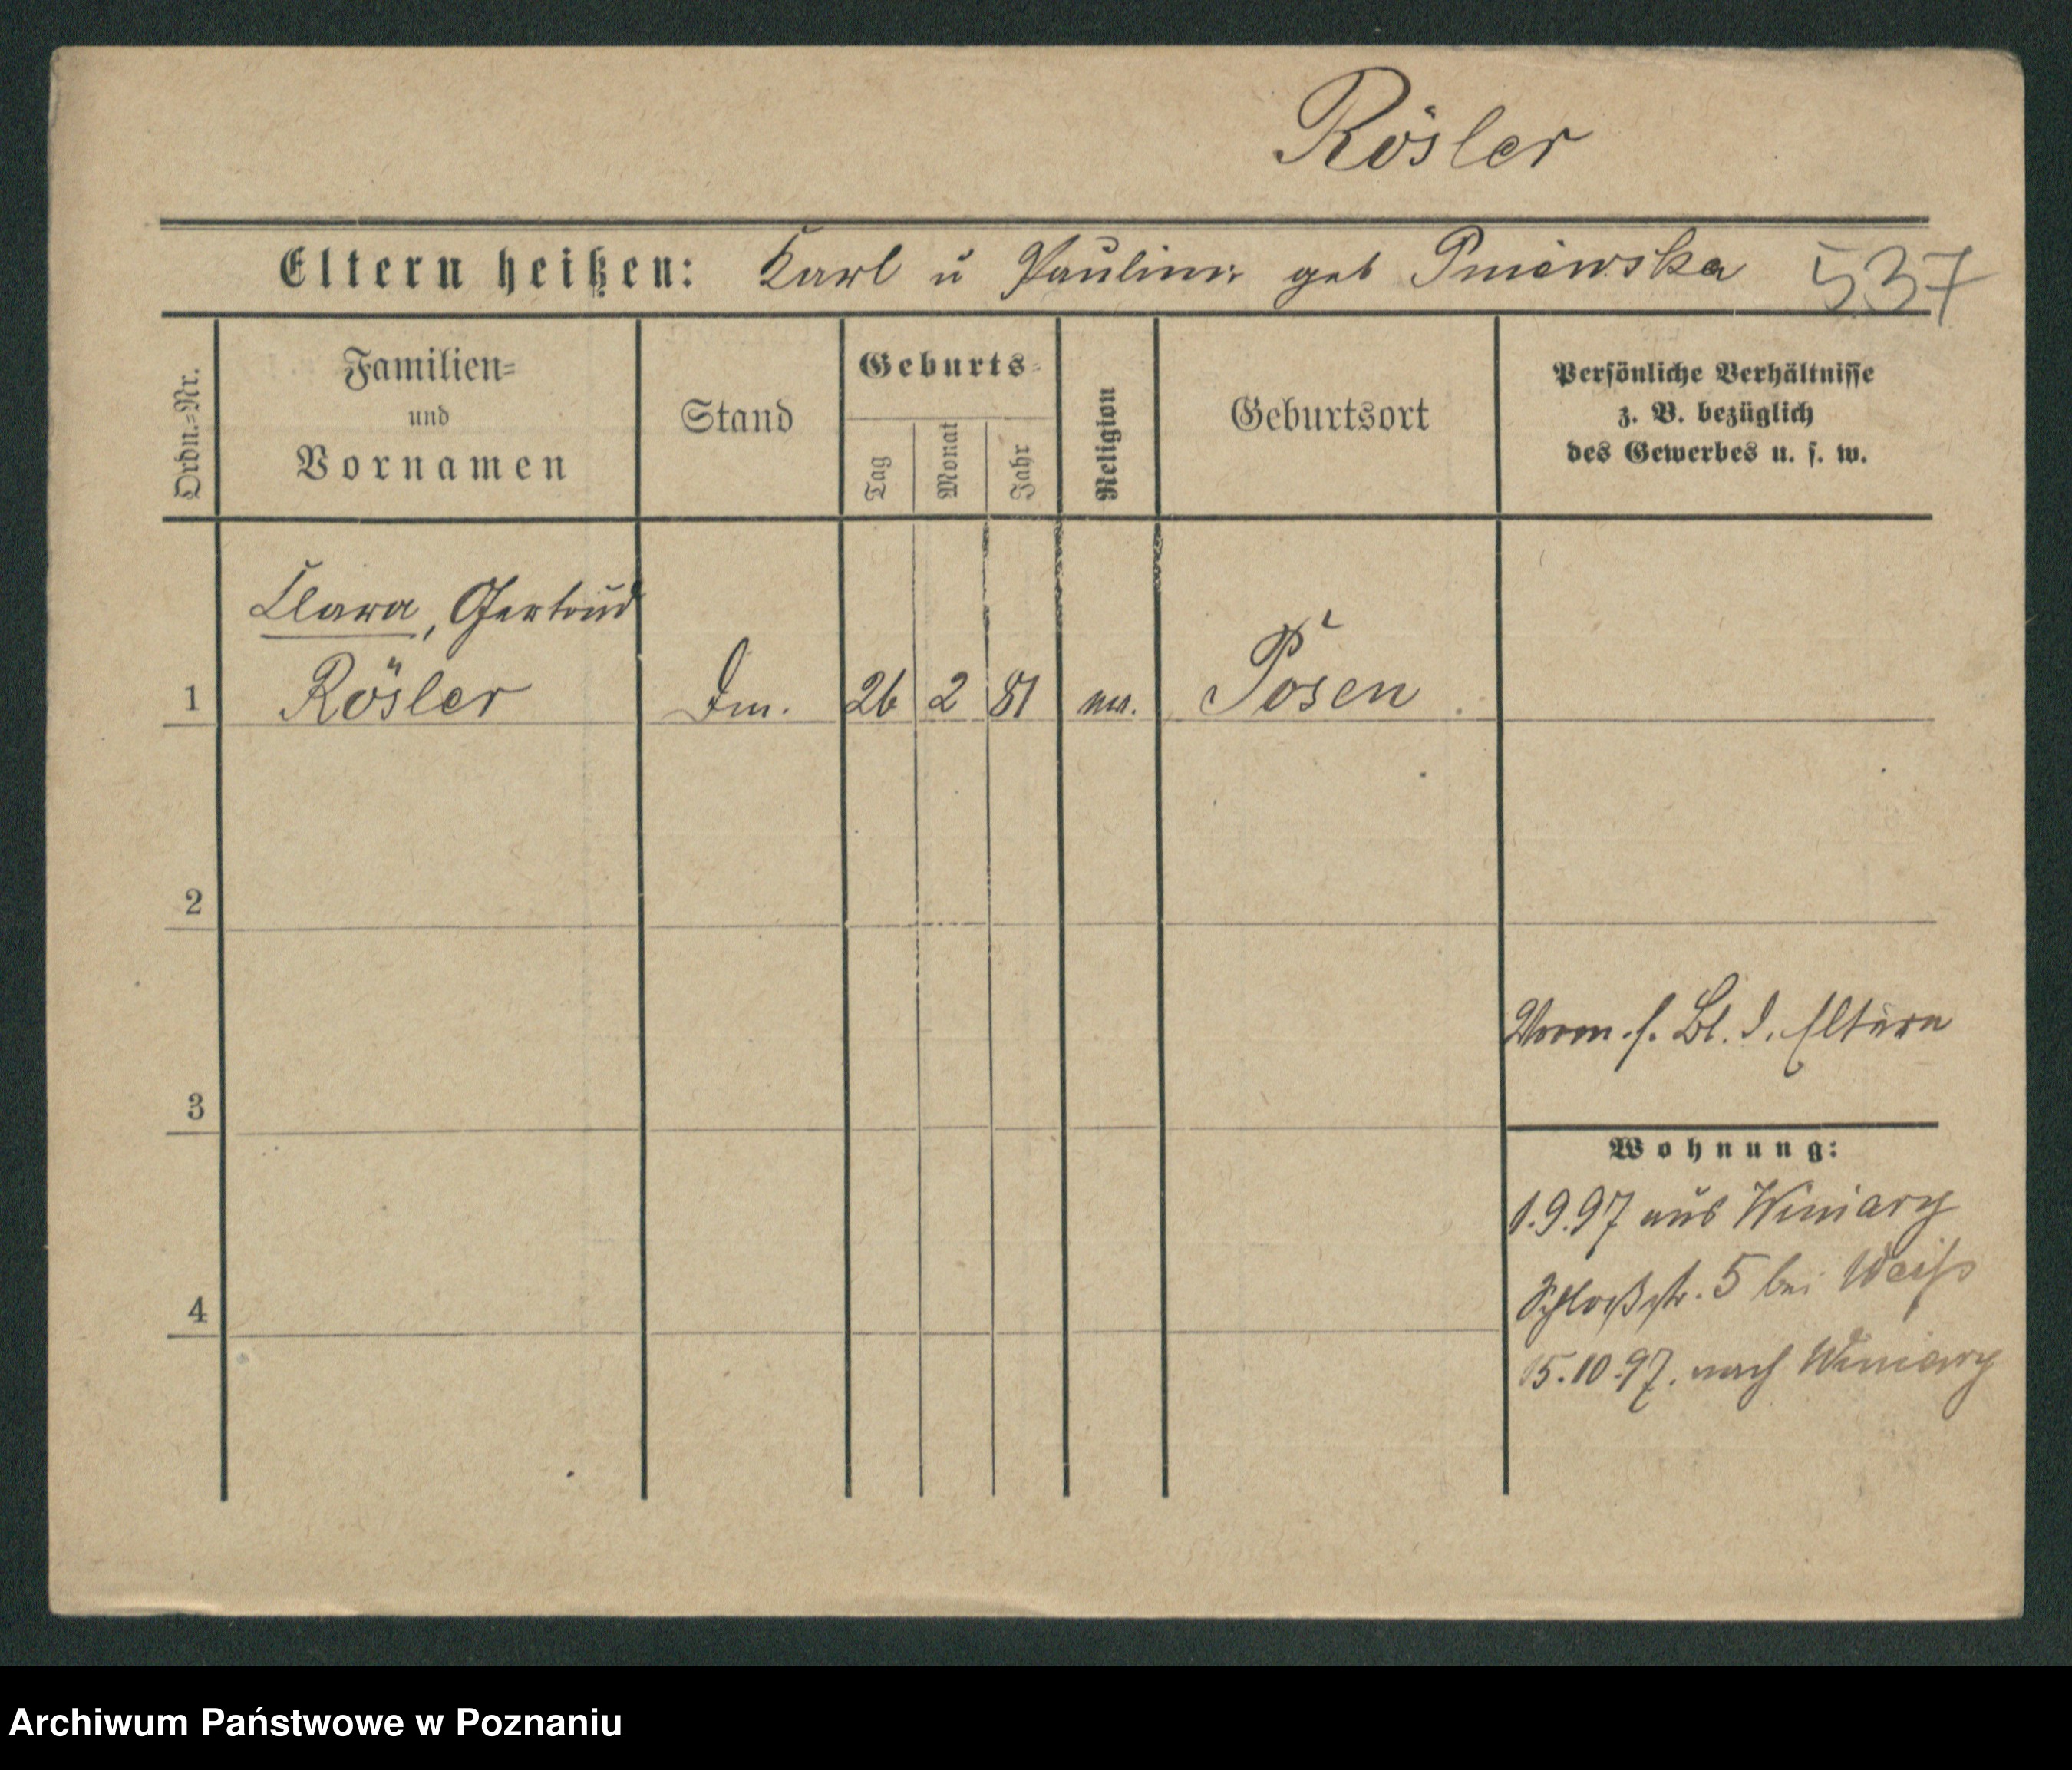 Rösler
Eltern heißen: Karl u Pauline geb Pniewska 537
Ordn.=Nr.
Familien=
und
Vornamen
Stand
Geburts=
Tag
Monat
Jahr
Religion
Geburtsort
Persönliche Verhältnisse
z. B. bezüglich
des Gewerbes u. s. w.
Clara, Gertrud
1 Rösler 26 2 81 Posen
2
Vorm. s. Bl. d. Eltern
3
Wohnung:
1.9.97 aus Winiary
Schloßstr. 5 bei Weiss
4
15.10.97. nach Winiary
Archiwum Państwowe w Poznaniu